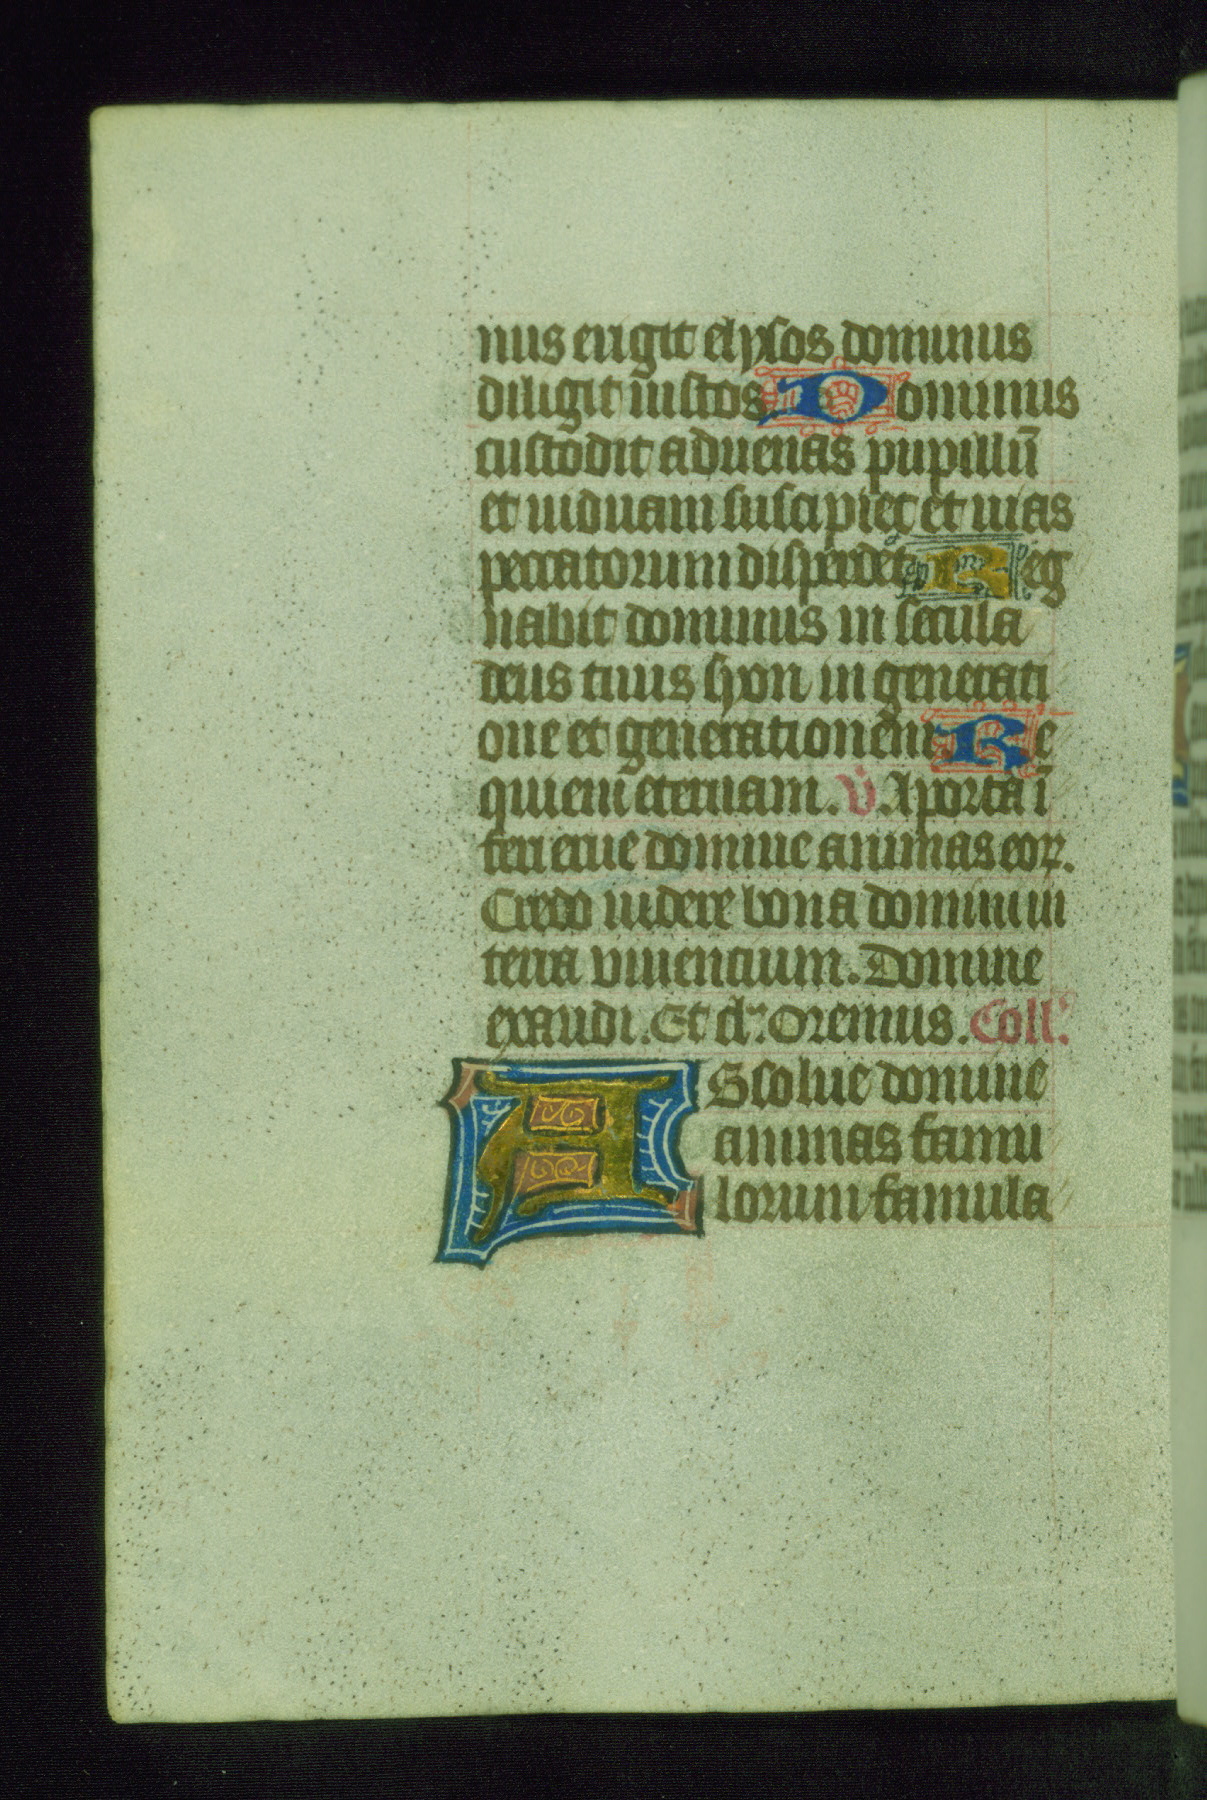 nus erigit elysos dominus
diligit iustos. Dominus
custodit aduenas pupillū
et uiduam suscipiet et uias
peccatorum disperdet. Reg
nabit dominus in secula
deus tuus syon in generati
one et generationem. Re
quiem eternam. V̄. A porta ī
feri erue domine animas eoꝝ.
Credo uidere bona domini in
terra viuencium. Domine
exaudi. Et clr̄. Oremus. Coll'.
ASsolue domine
animas famu
lorum famula